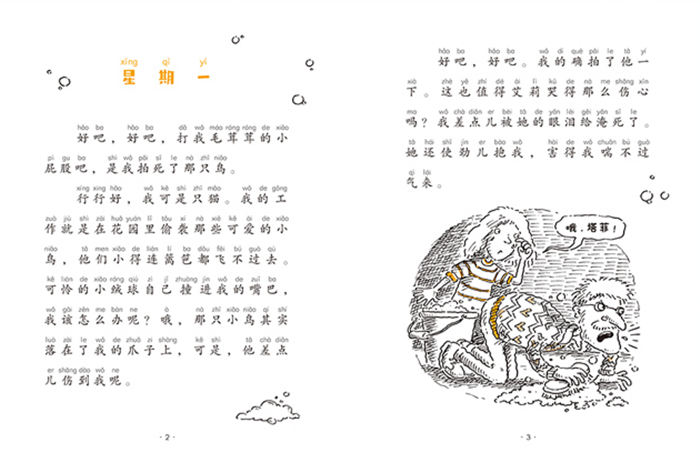 xīng qī yī
星期一
hǎo ba hǎo ba dǎ wǒ máo róng róng de xiǎo
好吧，好吧，打我毛茸茸的小
pì gu ba shì wǒ pāi sǐ le nà zhī niǎo
屁股吧，是我拍死了那只鸟。
xíng xíng hǎo wǒ kě shì zhī māo wǒ de gōng
行行好，我可是只猫。我的工
zuò jiù shì zài huā yuán lǐ tōu xí nà xiē kě ài de xiǎo
作就是在花园里偷袭那些可爱的小
niǎo tā men xiǎo de lián lí ba dōu fēi bú guò qù
鸟，他们小得连篱笆都飞不过去。
kě lián de xiǎo róng qiú zì jǐ zhuàng jìn wǒ de zuǐ ba
可怜的小绒球自己撞进我的嘴巴，
wǒ gāi zěn me bàn ne ò nà zhī xiǎo niǎo qí shí
我该怎么办呢？哦，那只小鸟其实
luò zài le wǒ de zhuǎ zi shàng kě shì tā chà diǎn
落在了我的爪子上，可是，他差点
er shāng dào wǒ ne
儿伤到我呢。
· 2 ·
hǎo ba hǎo ba wǒ dí què pāi le tā yí
好吧，好吧。我的确拍了他一
xià zhè yě zhí dé ài lì kū de nà me shāng xīn
下。这也值得艾莉哭得那么伤心
ma wǒ chà diǎn er bèi tā de yǎn lèi gěi yān sǐ le
吗？我差点儿被她的眼泪给淹死了。
tā hái shǐ jìn er bào wǒ hài de wǒ chuǎn bú guò
她还使劲儿抱我，害得我喘不过
qì lái
气来。
哦，塔菲！
· 3 ·